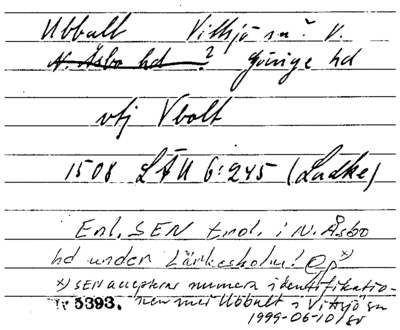 Ubbalt Vittsjö sn? V.
N. Åsbo hd ? Göinge hd
vtj Vbolt
1508 LÄU 6:245 (Ladke)
Enl. SEN trol. i N. Åsbo
hd under Lärkesholm! x)
x) SEN accepterar numera identifikatio-
nen med Ubbalt i Vittsjö sn
Nr 5393.
1999-06-10